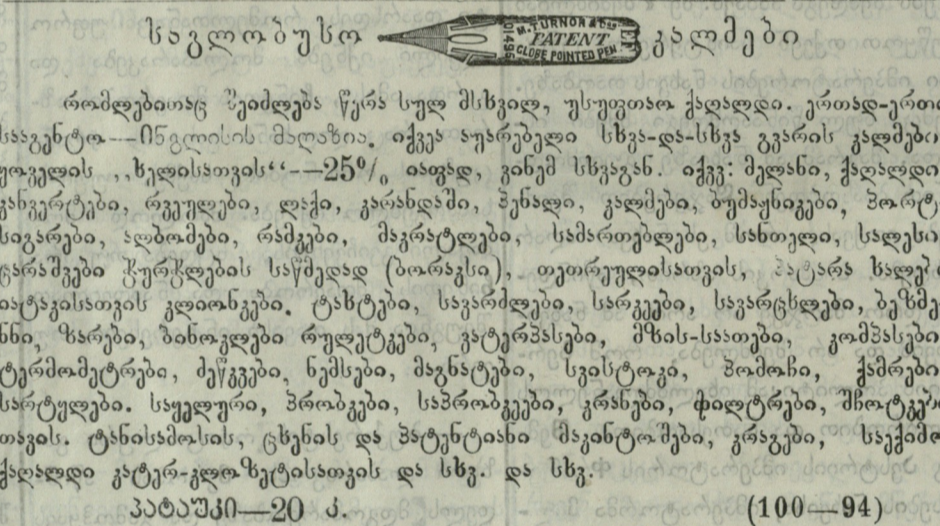 საგლობუსო M. TURNOR & Co PATENT GLOBE POINTED PEN კალმები
რომლებითაც შეიძლება წერა სულ მსხვილ, უსუფთაო ქაღალდი. ერთად-ერთი
სააგენტო—ინგლისის მაღაზია. იქვეა აუარებელი სხვა-და-სხვა გვარის კალმები
ყოველის ,,ხელისათვის“—25% იაფად, ვინემ სხვაგან. იქვე: მელანი, ქაღალდი
კანვერტები, რვეულები, ლაქი, კარანდაში, პენალი, კალმები, ბუმაჟნიკები, პორტ-
სიგარები, ალბომები, რამკები, მაკრატლები, სამართებლები, სანთელი, სალესი
ცარაშვები ჭურჭლების საწმედად (ბორაკსი), თეთრეულისათვის, პატარა ხალები
იატაკისათვის კლიონკები. ტახტები, სავარძლები, სარკეები, სავარცხლები, ბეზმე
ნნი, ზარები, ბინოკლები რულეტკები, ვატერპასები, მზის-საათები, კომპასები
ტერმომეტრები, ძეწკვები, ნემსები, მაგნატები, სვისტოკი, პომოჩი, ქამრები
სარტყლები. საყელური, პრობკები, საპრობკეები, კრანები, ფილტრები, შჩოტკები
თავის. ტანისამოსის, ცხენის და პატენტიანი მაკინტოშები, კრაგები, საექიმო
ქაღალდი კატერ-კლოზეტისათვის და სხვ. და სხვ.
ᲞᲐᲢᲐᲣᲙᲘ—20 კ. (100—94)